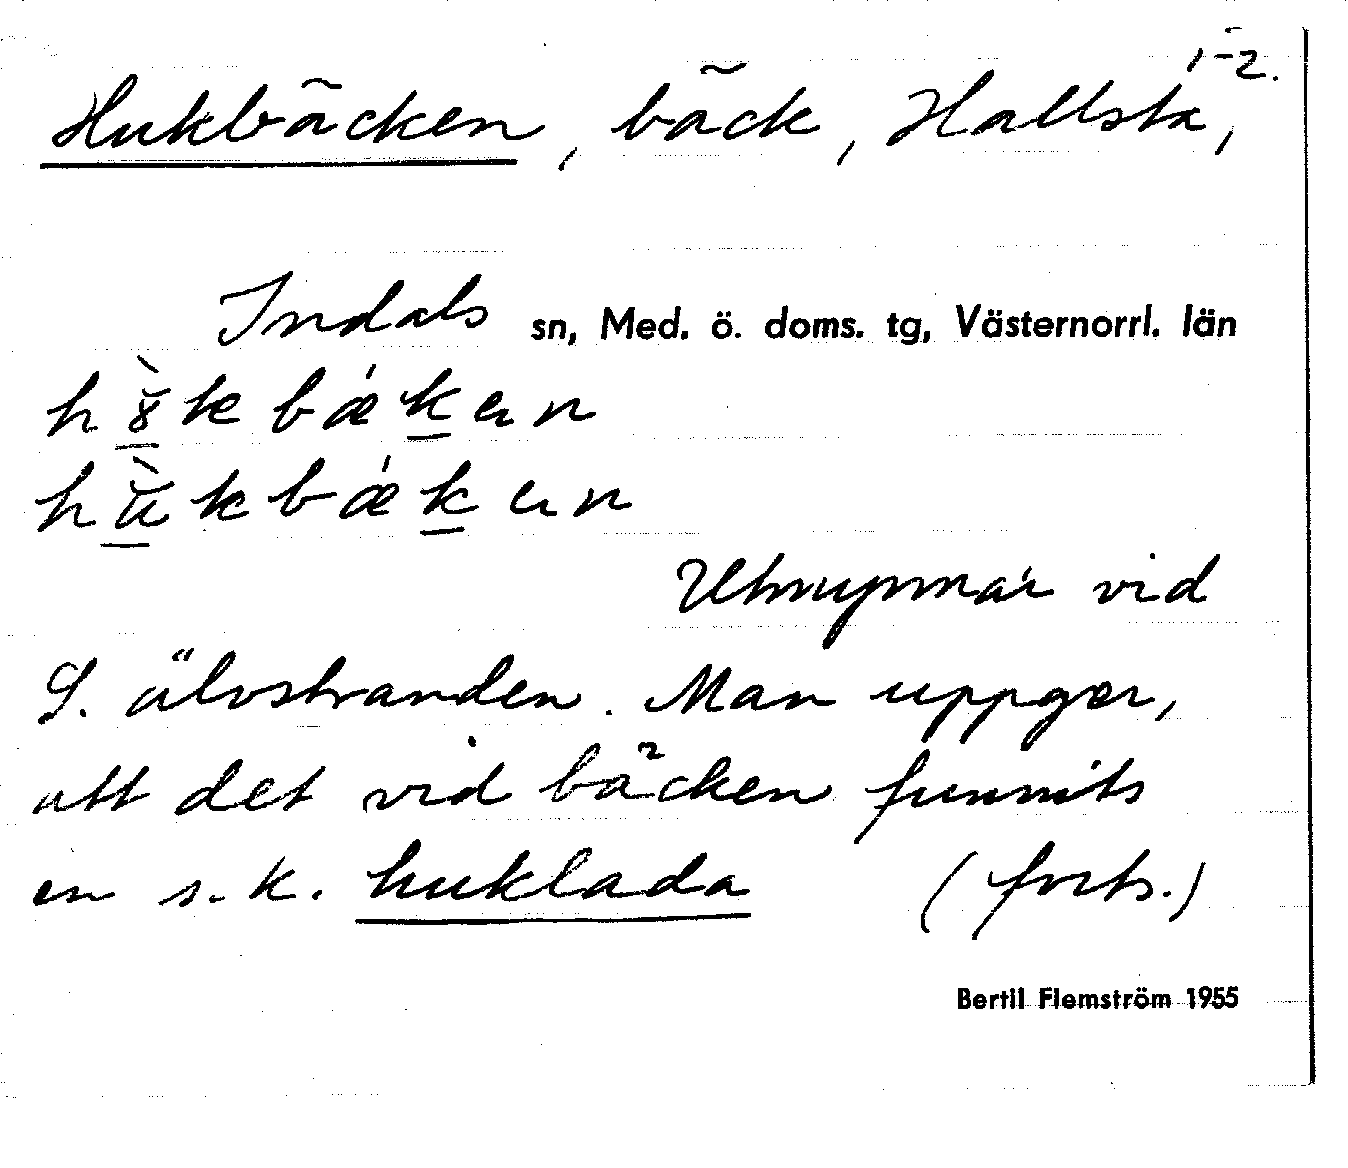 1-2.
Hukbäcken, bäck, Hallsta,
Indals sn, Med. ö. doms. tg, Västernorrl. län
hɤ̀kbǽkən
hùkbǽkən
Utmynnar vid
S. älvstranden. Man uppger,
att det vid bäcken funnits
en s.k. huklada (forts.)
Bertil Flemström 1955